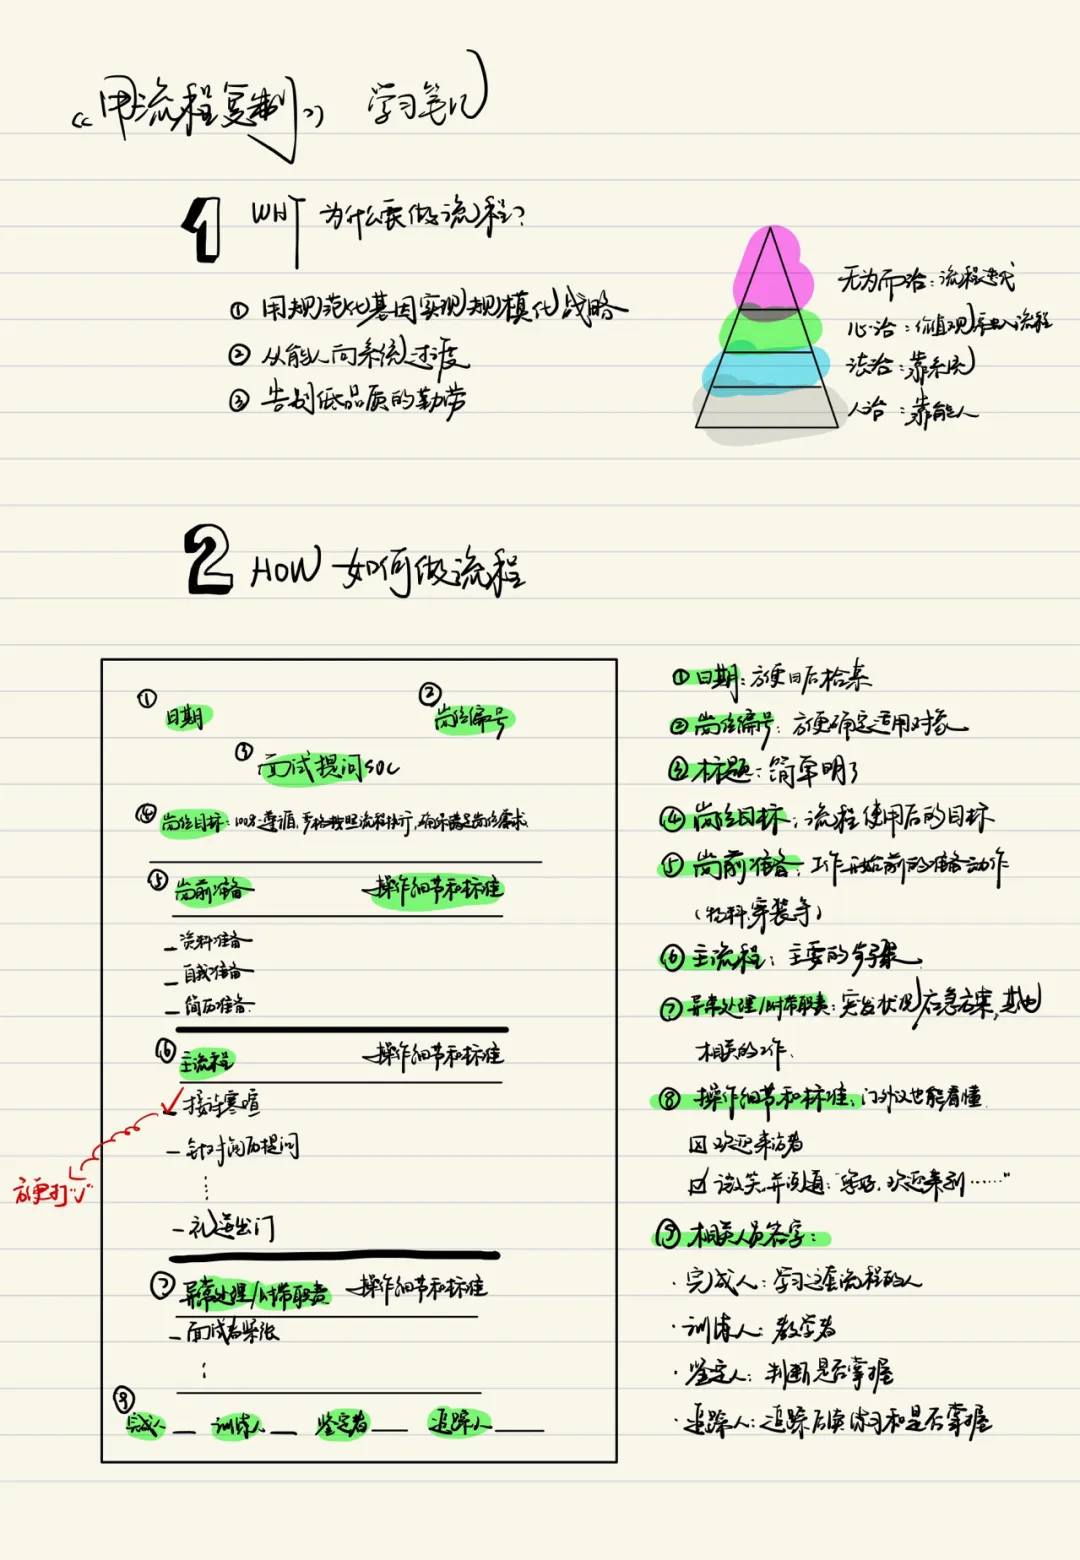 《用流程复制》 学习笔记
1 WHY 为什么要做流程?
① 用规范化基因实现规模化战略
② 从能人向系统过渡
③ 告别低品质的勤劳
无为而治：流程迭代
心治：价值观融入流程
法治：靠系统
人治：靠能人
2 HOW 如何做流程
① 日期
② 岗位编号
③ 面试提问SOC
④ 岗位目标：100%遵循,严格按照流程执行,确保满足岗位需求
⑤ 岗前准备 操作细节和标准
- 资料准备
- 自我准备
- 简历准备
⑥ 主流程 操作细节和标准
- 接待寒暄
- 针对简历提问
- 礼送出门
方便打"√"
⑦ 异常处理/附带职责 操作细节和标准
- 面试者紧张
⑨ 完成人 训练人 鉴定者 追踪人
① 日期：方便日后检索
② 岗位编号：方便确定适用对象
③ 标题：简单明了
④ 岗位目标：流程使用后的目标
⑤ 岗前准备：工作开始前的准备动作
(物料,穿装等)
⑥ 主流程：主要的步骤
⑦ 异常处理/附带职责：突发状况应急方案,其他
相关的工作.
⑧ 操作细节和标准：门外汉也能看懂
☑ 欢迎来访者
☑ 微笑并沟通："您好,欢迎来到……"
⑨ 相关人员签字：
· 完成人：学习这套流程的人
· 训练人：教学者
· 鉴定人：判断是否掌握
· 追踪人：追踪后续练习和是否掌握